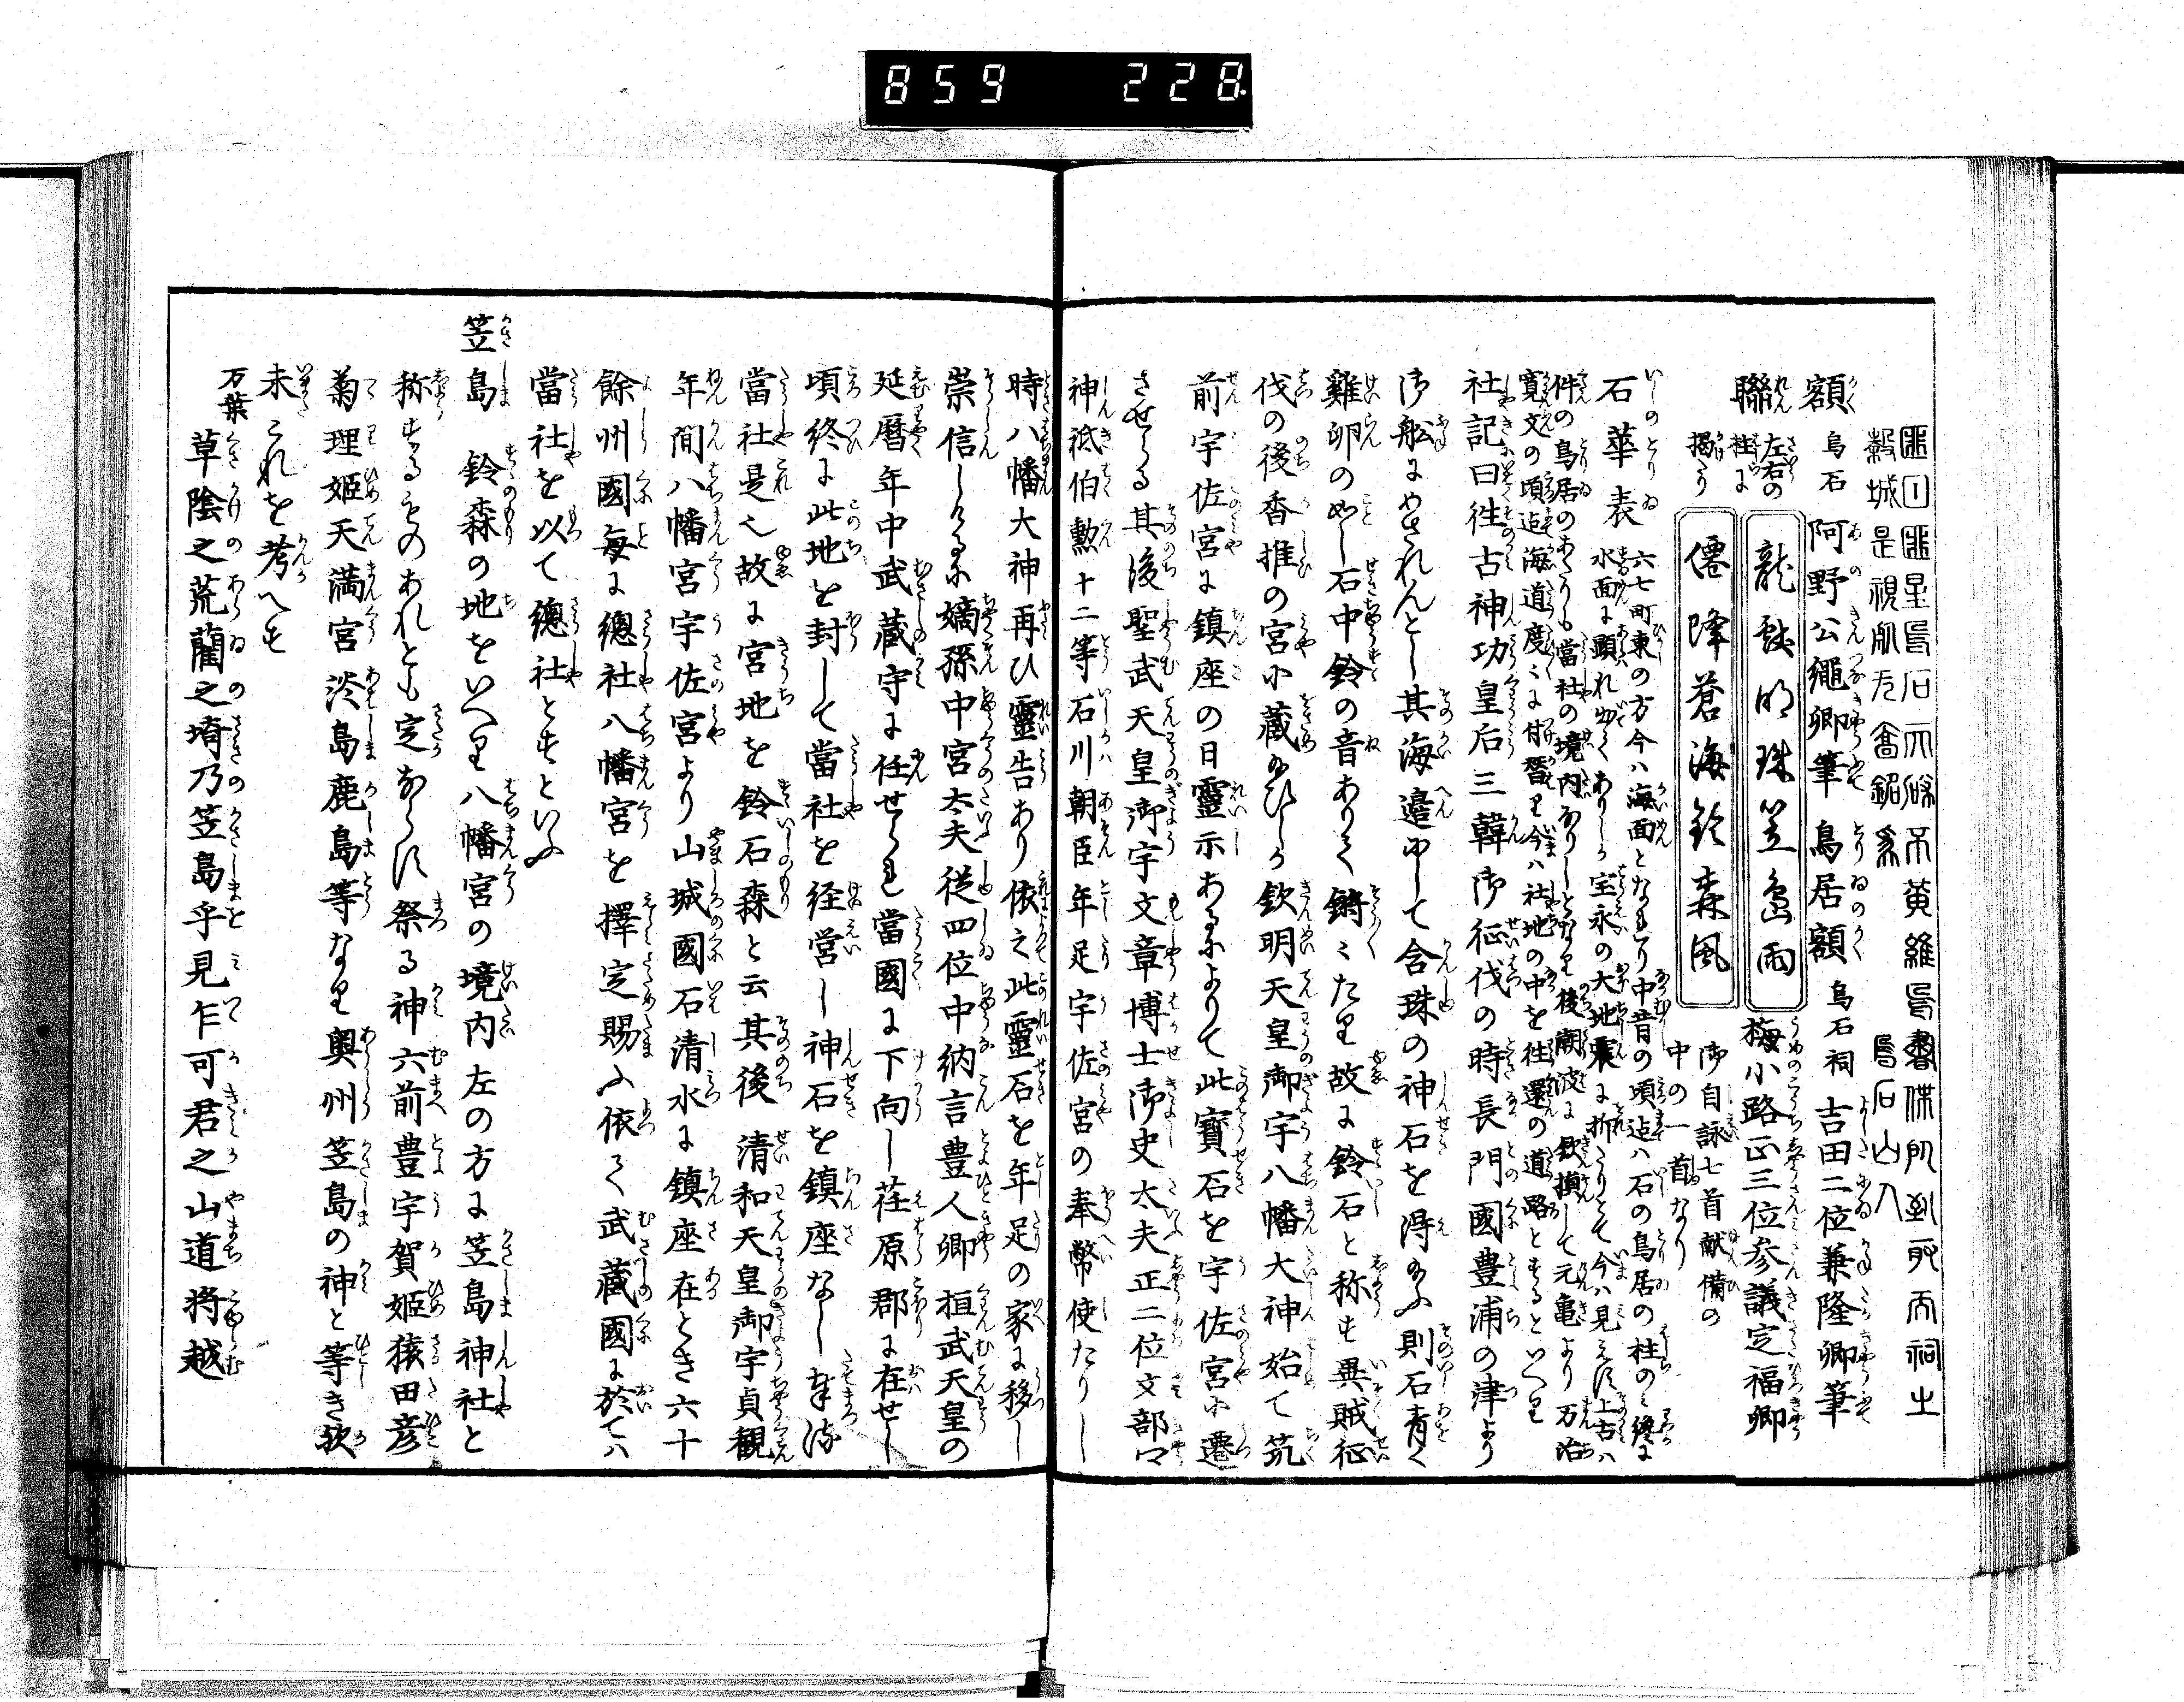 859 228
穀城是視
烏石山人
額 烏石 阿野公繩卿筆 鳥居額 烏石祠 吉田二位兼隆卿筆
聯 左右の柱に掲けり
龍献明珠笠島雨
僊降蒼海鈴森風
梅小路正三位参議定福卿
御自詠七首献備の
中の一首なり
石華表 六七町東の方今ハ海面となれり中昔の頃迄ハ石の鳥居の柱のミ纔に
水面に顕れ出てありしか宝永の大地震に折たりとて今ハ見えす上古ハ
件の鳥居のあたりも當社の境内なりしとなり後潮波に欽損して元亀より万治
寛文の頃迄海道度〻に付替り今ハ社地の中を往還の道路とするといへり
社記曰往古神功皇后三韓御征伐の時長門國豊浦の津より
御舩にめされんとし其海邉にして含珠の神石を得給ふ則石青く
雞卵の如し石中鈴の音ありて鏘〻たり故に鈴石と称す異賊征
伐の後香椎の宮に蔵給ひしか欽明天皇御宇八幡大神始て筑
前宇佐宮に鎮座の日靈示あるによりて此寳石を宇佐宮に遷
させらる其後聖武天皇御宇文章博士御史大夫正二位文部卿
神祇伯勲十二等石川朝臣年足宇佐宮の奉幣使たりし
時八幡大神再ひ靈告あり依之此靈石を年足の家に移し
崇信しけるに嫡孫中宮大夫従四位中納言豊人卿桓武天皇の
延暦年中武蔵守に任せられ當國に下向し荏原郡に在せし
頃終に此地を封して當社を経営し神石を鎮座なし奉る
當社是也故に宮地を鈴石森と云其後清和天皇御宇貞観
年間八幡宮宇佐宮より山城國石清水に鎮座在とき六十
餘州國毎に總社八幡宮を擇定賜ふ依て武蔵國に於てハ
當社を以て總社とすといふ
笠島 鈴森の地をいへり八幡宮の境内左の方に笠島神社と
称するものあれとも定ならす祭る神六前豊宇賀姫猿田彦
菊理姫天満宮淡島鹿島等なり奥州笠島の神と等き歟
未これを考へす
万葉 草陰之荒藺之埼乃笠島乎見乍可君之山道将越